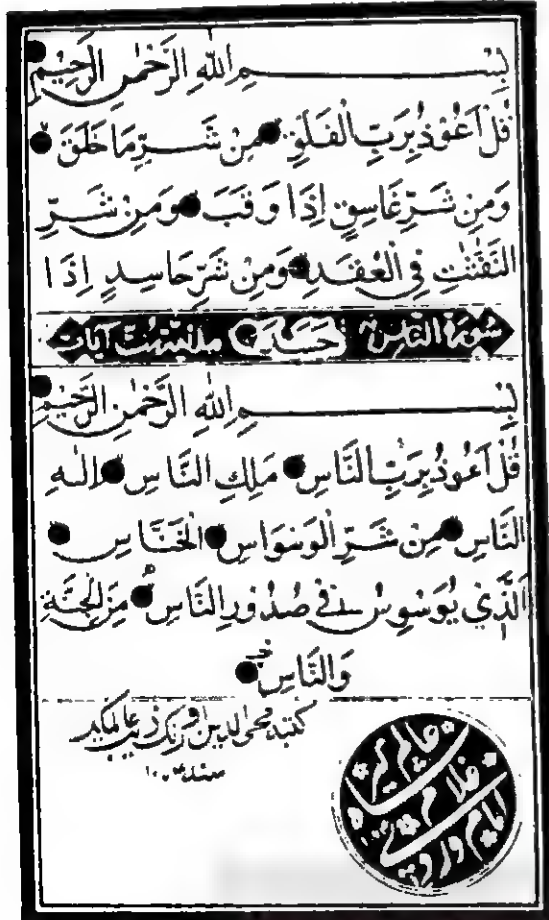 بِسْمِ اللهِ الرَّحْمٰنِ الرَّحِيْمِ
قُلْ اَعُوْذُ بِرَبِّ الْفَلَقِ مِنْ شَرِّ مَا خَلَقَ
وَمِنْ شَرِّ غَاسِقٍ اِذَا وَقَبَ وَمِنْ شَرِّ
النَّفّٰثٰتِ فِي الْعُقَدِ وَمِنْ شَرِّ حَاسِدٍ اِذَا
سورة الناس حَسَدَ مدنية ست آيات
بِسْمِ اللهِ الرَّحْمٰنِ الرَّحِيْمِ
قُلْ اَعُوْذُ بِرَبِّ النَّاسِ مَلِكِ النَّاسِ اِلٰهِ
النَّاسِ مِنْ شَرِّ الْوَسْوَاسِ الْخَنَّاسِ
الَّذِيْ يُوَسْوِسُ فِيْ صُدُوْرِ النَّاسِ مِنَ الْجِنَّةِ
وَالنَّاسِ
كتبه محي الدين اورنك زيب عالمكير
سنه